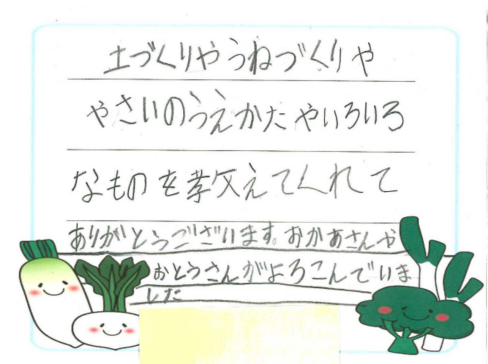 土づくりやうねづくりや
やさいのうえかたやいろいろ
なものを教えてくれて
ありがとうございます。おかあさんや
おとうさんがよろこんでいま
した